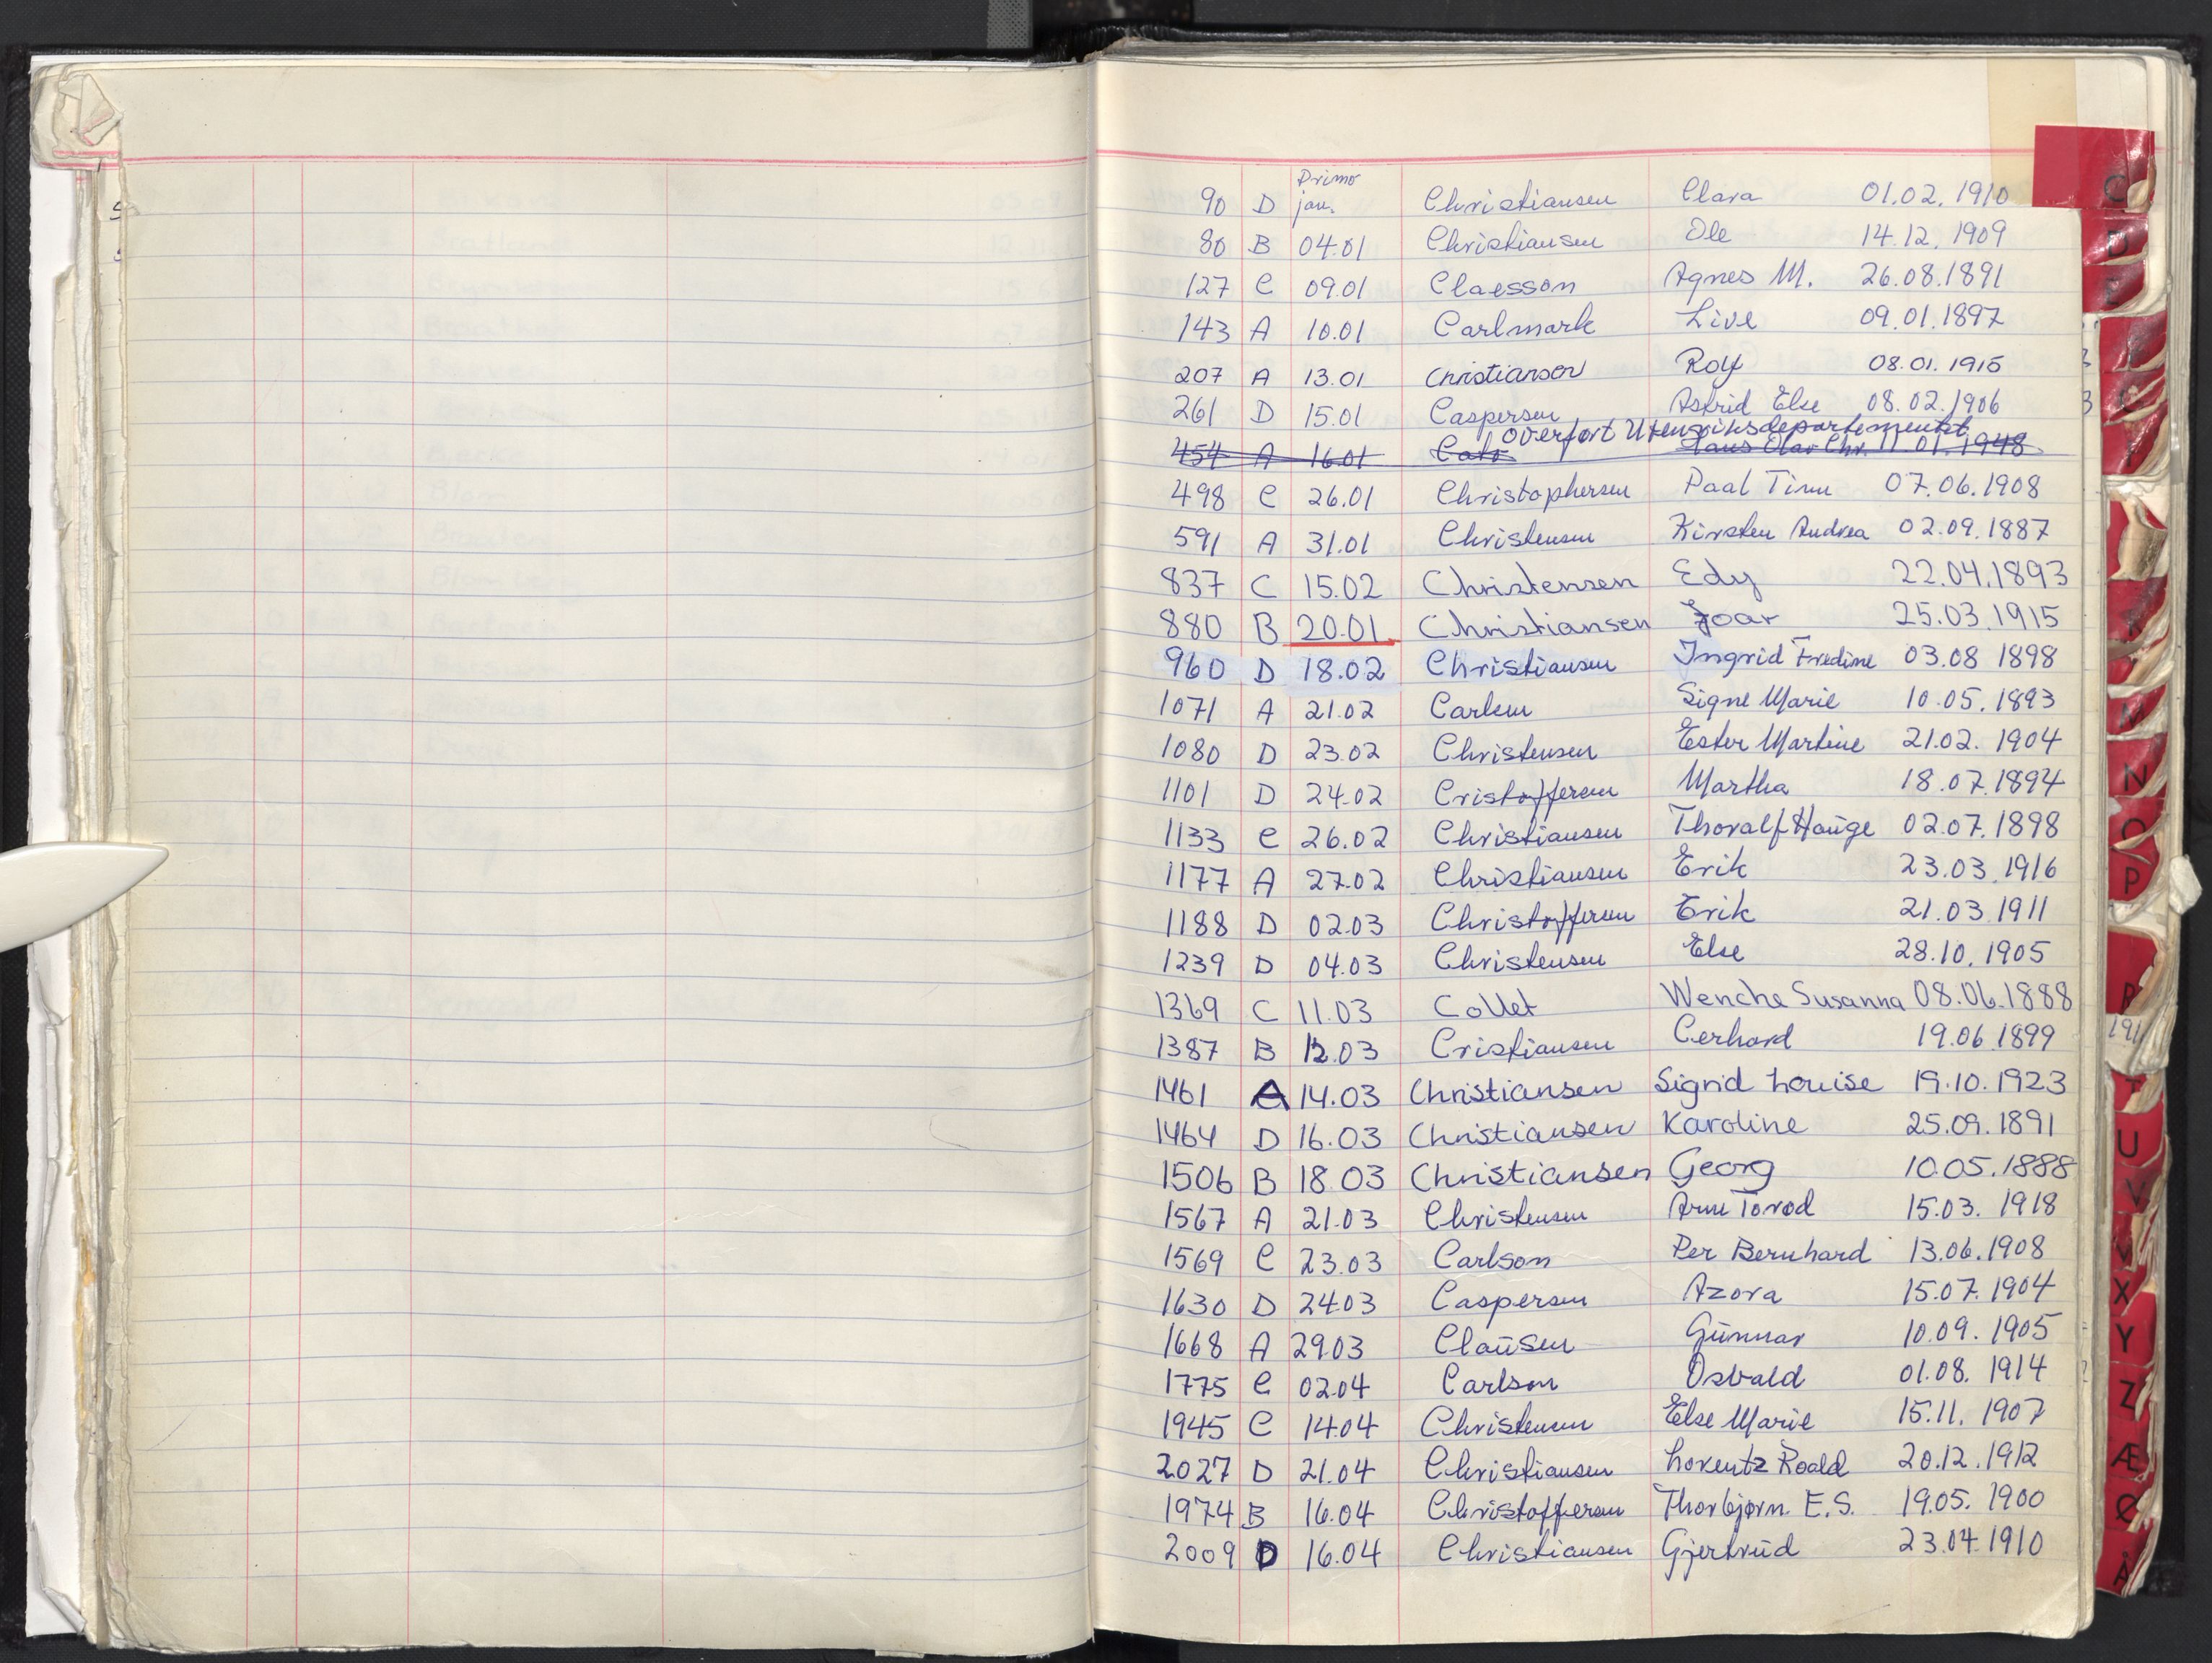 Primo
90 D jan. Christiansen Clara 01.02.1910
80 B 04.01 Christiansen Ole 14.12.1909
127 C 09.01 Claesson Agnes M. 26.08.1891
143 A 10.01 Carlmark Live 09.01.1897
207 A 13.01 Christiansen Rolf 08.01.1915
261 D 15.01 Caspersen Astrid Else 08.02.1906
Overført Utenriksdepartementet
454 A 16.01 Hans Olav Chr. 11.01.1948
498 C 26.01 Christophersen Paal Tinn 07.06.1908
591 A 31.01 Christensen Kirsten Andrea 02.09.1887
837 C 15.02 Christensen Edy 22.04.1893
880 B 20.01 Christiansen Joar 25.03.1915
960 D 18.02 Christiansen Ingrid Fredine 03.08 1898
1071 A 21.02 Carlsen Signe Marie 10.05.1893
1080 D 23.02 Christensen Ester Martine 21.02.1904
1101 D 24.02 Cristoffersen Martha 18.07.1894
1133 C 26.02 Christiansen Thoralf Hauge 02.07.1898
1177 A 27.02 Christiansen Erik 23.03.1916
1188 D 02.03 Christoffersen Erik 21.03.1911
1239 D 04.03 Christensen Else 28.10.1905
1369 C 11.03 Collet Wenche Susanna 08.06.1888
1387 B 12.03 Cristiansen Gerhard 19.06.1899
1461 A 14.03 Christiansen Sigrid Louise 19.10.1923
1464 D 16.03 Christiansen Karoline 25.09.1891
1506 B 18.03 Christiansen Georg 10.05.1888
1567 A 21.03 Christensen Arne Torod 15.03.1918
1569 C 23.03 Carlson Per Bernhard 13.06.1908
1630 D 24.03 Caspersen Azora 15.07.1904
1668 A 29.03 Clausen Gunnar 10.09.1905
1775 C 02.04 Carlson Osvald 01.08.1914
1945 C 14.04 Christensen Else Marie 15.11.1907
2027 D 21.04 Christiansen Lorentz Roald 20.12.1912
1974 B 16.04 Christoffersen Thorbjørn E.S. 19.05.1900
2009 D 16.04 Christiansen Gjertrud 23.04.1910
C
D
E
N
O
P
R
T
U
V
X
Y
Z
Æ
Ø
Å